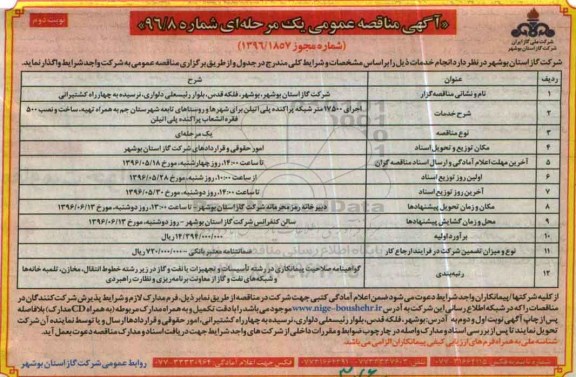 نوبت دوم
«آگهی مناقصه عمومی یک مرحله‌ای شماره ۹۶/۸»
(شماره مجوز ۱۳۹۶/۱۸۵۷)
شرکت ملی گاز ایران
شرکت گاز استان بوشهر
شرکت گاز استان بوشهر در نظر دارد انجام خدمات ذیل را بر اساس مشخصات و شرایط کلی مندرج در جدول و از طریق برگزاری مناقصه عمومی به شرکت واجد شرایط واگذار نماید.
ردیف عنوان شرح
۱ نام و نشانی مناقصه‌گزار شرکت گاز استان بوشهر، بوشهر، فلکه قدس، بلوار رئیسعلی دلواری، نرسیده به چهارراه کشتیرانی
۲ شرح خدمات اجرای ۱۷۵۰۰ متر شبکه پراکنده پلی اتیلن برای شهرها و روستاهای تابعه شهرستان جم به همراه تهیه، ساخت و نصب ۵۰۰ فقره انشعاب پراکنده پلی اتیلن
۳ نوع مناقصه یک مرحله‌ای
۴ مکان توزیع و تحویل اسناد امور حقوقی و قراردادهای شرکت گاز استان بوشهر
۵ آخرین مهلت اعلام آمادگی و ارسال اسناد مناقصه گران تا ساعت ۱۴:۰۰، روز چهارشنبه، مورخ ۱۳۹۶/۰۵/۱۸
۶ اولین روز توزیع اسناد از ساعت ۱۰:۰۰، روز شنبه، مورخ ۱۳۹۶/۰۵/۲۸
۷ آخرین روز توزیع اسناد تا ساعت ۱۴:۰۰، روز دوشنبه، مورخ ۱۳۹۶/۰۵/۳۰
۸ مکان و زمان تحویل پیشنهادها دبیرخانه رمز محرمانه شرکت گاز استان بوشهر - تا ساعت ۱۳:۰۰، روز دوشنبه، مورخ ۱۳۹۶/۰۶/۱۳
۹ محل و زمان گشایش پیشنهادها سالن کنفرانس شرکت گاز استان بوشهر - روز دوشنبه، مورخ ۱۳۹۶/۰۶/۱۳
۱۰ برآورد اولیه ۱۴/۳۹۴/۰۰۰/۰۰۰ ریال
۱۱ نوع و میزان تضمین شرکت در فرایند ارجاع کار ضمانتنامه معتبر بانکی - ۷۲۰/۰۰۰/۰۰۰ ریال
۱۲ رتبه‌بندی گواهینامه صلاحیت پیمانکاری در رشته تأسیسات و تجهیزات یا نفت و گاز در زیر رشته خطوط انتقال، مخازن، تلمبه خانه‌ها و شبکه‌های نفت و گاز از معاونت برنامه‌ریزی و نظارت راهبردی
از کلیه شرکتها/پیمانکاران واجد شرایط دعوت می‌شود ضمن اعلام آمادگی کتبی جهت شرکت در مناقصه از طریق نمابر ذیل، فرم مدارک لازم و شرایط پذیرش شرکت کنندگان در
مناقصات را که در شبکه اطلاع رسانی این شرکت به آدرس www.nigc-boushehr.ir موجود می‌باشد را با دقت تکمیل و به همراه مدارک مربوطه (به همراه CD مدارک) بلافاصله
پس از چاپ آگهی نوبت اول و دوم به آدرس بوشهر، فلکه قدس، بلوار رئیسعلی دلواری، نرسیده به چهارراه کشتیرانی، امور حقوقی و قراردادها ارسال و یا توسط نماینده آن شرکت
تحویل نمایند تا پس از بررسی اسناد و مدارک واصله در چارچوب ضوابط و مقررات داخلی از شرکت‌های واجد شرایط جهت دریافت اسناد و مدارک مناقصه دعوت بعمل آید.
شناسه ملی به همراه فرم‌های ارزیابی کیفی پیمانکاران الزامی می‌باشد.
فکس جهت اعلام آمادگی:
روابط عمومی شرکت گاز استان بوشهر